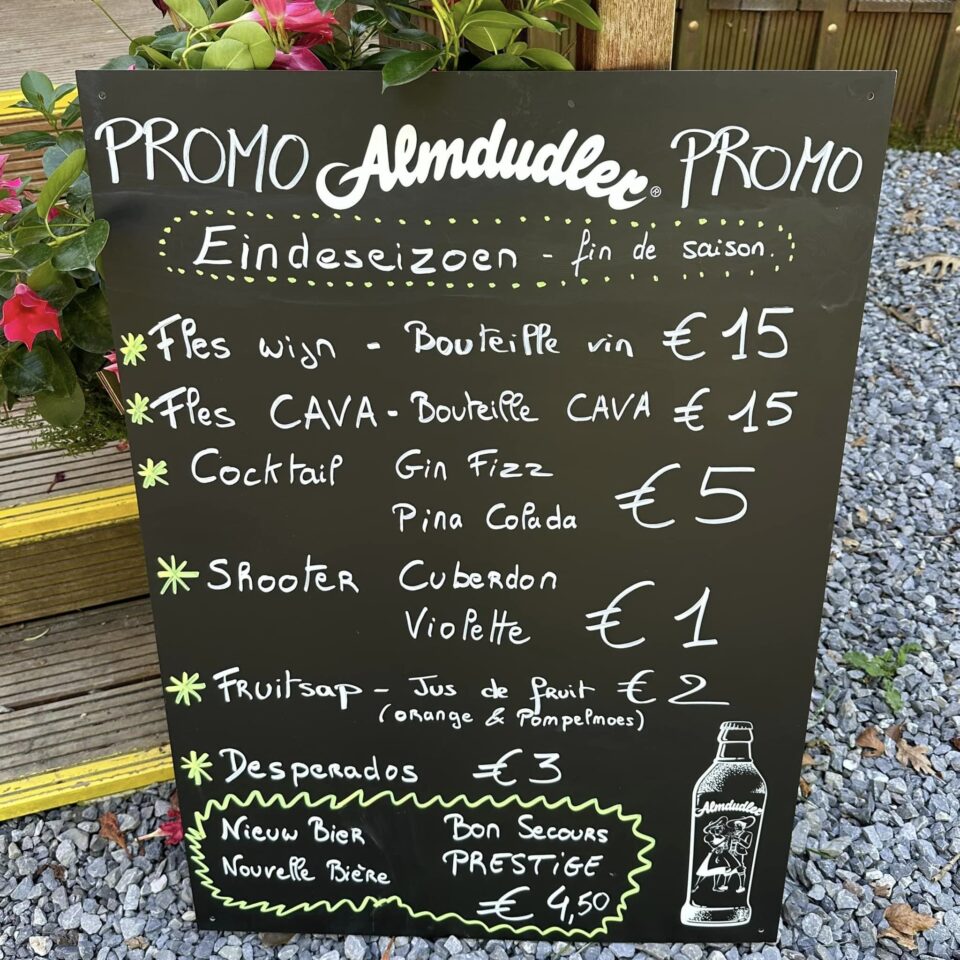 PROMO Almdudler® PROMO
Eindeseizoen - fin de saison.
* Fles wijn - Bouteille vin € 15
* Fles CAVA - Bouteille CAVA € 15
* Cocktail Gin Fizz
Pina Colada € 5
* Shooter Cuberdon
Violette € 1
* Fruitsap - Jus de fruit € 2
(orange & Pompelmoes)
* Desperados € 3
Nieuw Bier Bon Secours
Nouvelle Bière PRESTIGE
€ 4,50
Almdudler